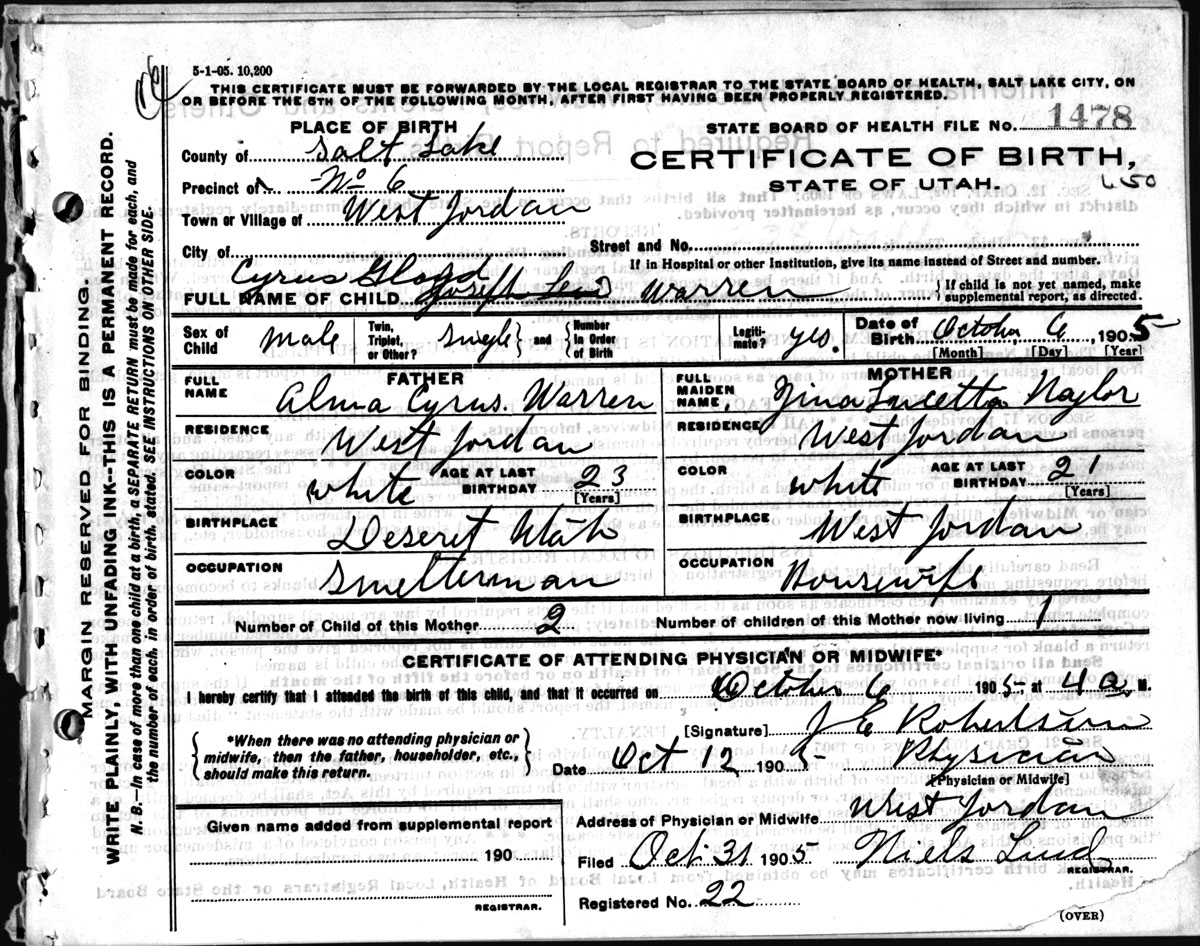 5-1-05. 10,200
THIS CERTIFICATE MUST BE FORWARDED BY THE LOCAL REGISTRAR TO THE STATE BOARD OF HEALTH, SALT LAKE CITY, ON
OR BEFORE THE 5TH OF THE FOLLOWING MONTH, AFTER FIRST HAVING BEEN PROPERLY REGISTERED.
PLACE OF BIRTH
STATE BOARD OF HEALTH FILE No. 1478
County of Salt Lake
CERTIFICATE OF BIRTH,
Precinct of No 6
STATE OF UTAH.
Town or Village of West Jordan
City of
Street and No.
If in Hospital or other Institution, give its name instead of Street and number.
Cyrus Gloyd
FULL NAME OF CHILD Joseph Warren
{ If child is not yet named, make
supplemental report, as directed.
Sex of Child male
Twin, Triplet, or Other? Single } and { Number in Order of Birth
Legiti- mate? yes.
Date of Birth October 6 1905
[Month] [Day] [Year]
FATHER
FULL NAME Alma Cyrus Warren
RESIDENCE West Jordan
COLOR white AGE AT LAST BIRTHDAY 23
[Years]
BIRTHPLACE Deseret Utah
OCCUPATION Smelterman
MOTHER
FULL MAIDEN NAME, Zina Lucetta Naylor
RESIDENCE West Jordan
COLOR white AGE AT LAST BIRTHDAY 21
[Years]
BIRTHPLACE West Jordan
OCCUPATION Housewife
Number of Child of this Mother 2 Number of children of this Mother now living 1
CERTIFICATE OF ATTENDING PHYSICIAN OR MIDWIFE*
I hereby certify that I attended the birth of this child, and that it occurred on October 6 1905 at 4 a. M.
[Signature] J E Robertson
{ *When there was no attending physician or
midwife, then the father, householder, etc.,
should make this return. }
Date Oct 12 1905 Physician
[Physician or Midwife]
Address of Physician or Midwife West Jordan
Given name added from supplemental report
190
REGISTRAR.
Filed Oct 31 1905 Niels Lind
REGISTRAR.
Registered No. 22
(OVER)
MARGIN RESERVED FOR BINDING.
WRITE PLAINLY, WITH UNFADING INK--THIS IS A PERMANENT RECORD.
N. B.—In case of more than one child at a birth, a SEPARATE RETURN must be made for each, and
the number of each, in order of birth, stated. SEE INSTRUCTIONS ON OTHER SIDE.